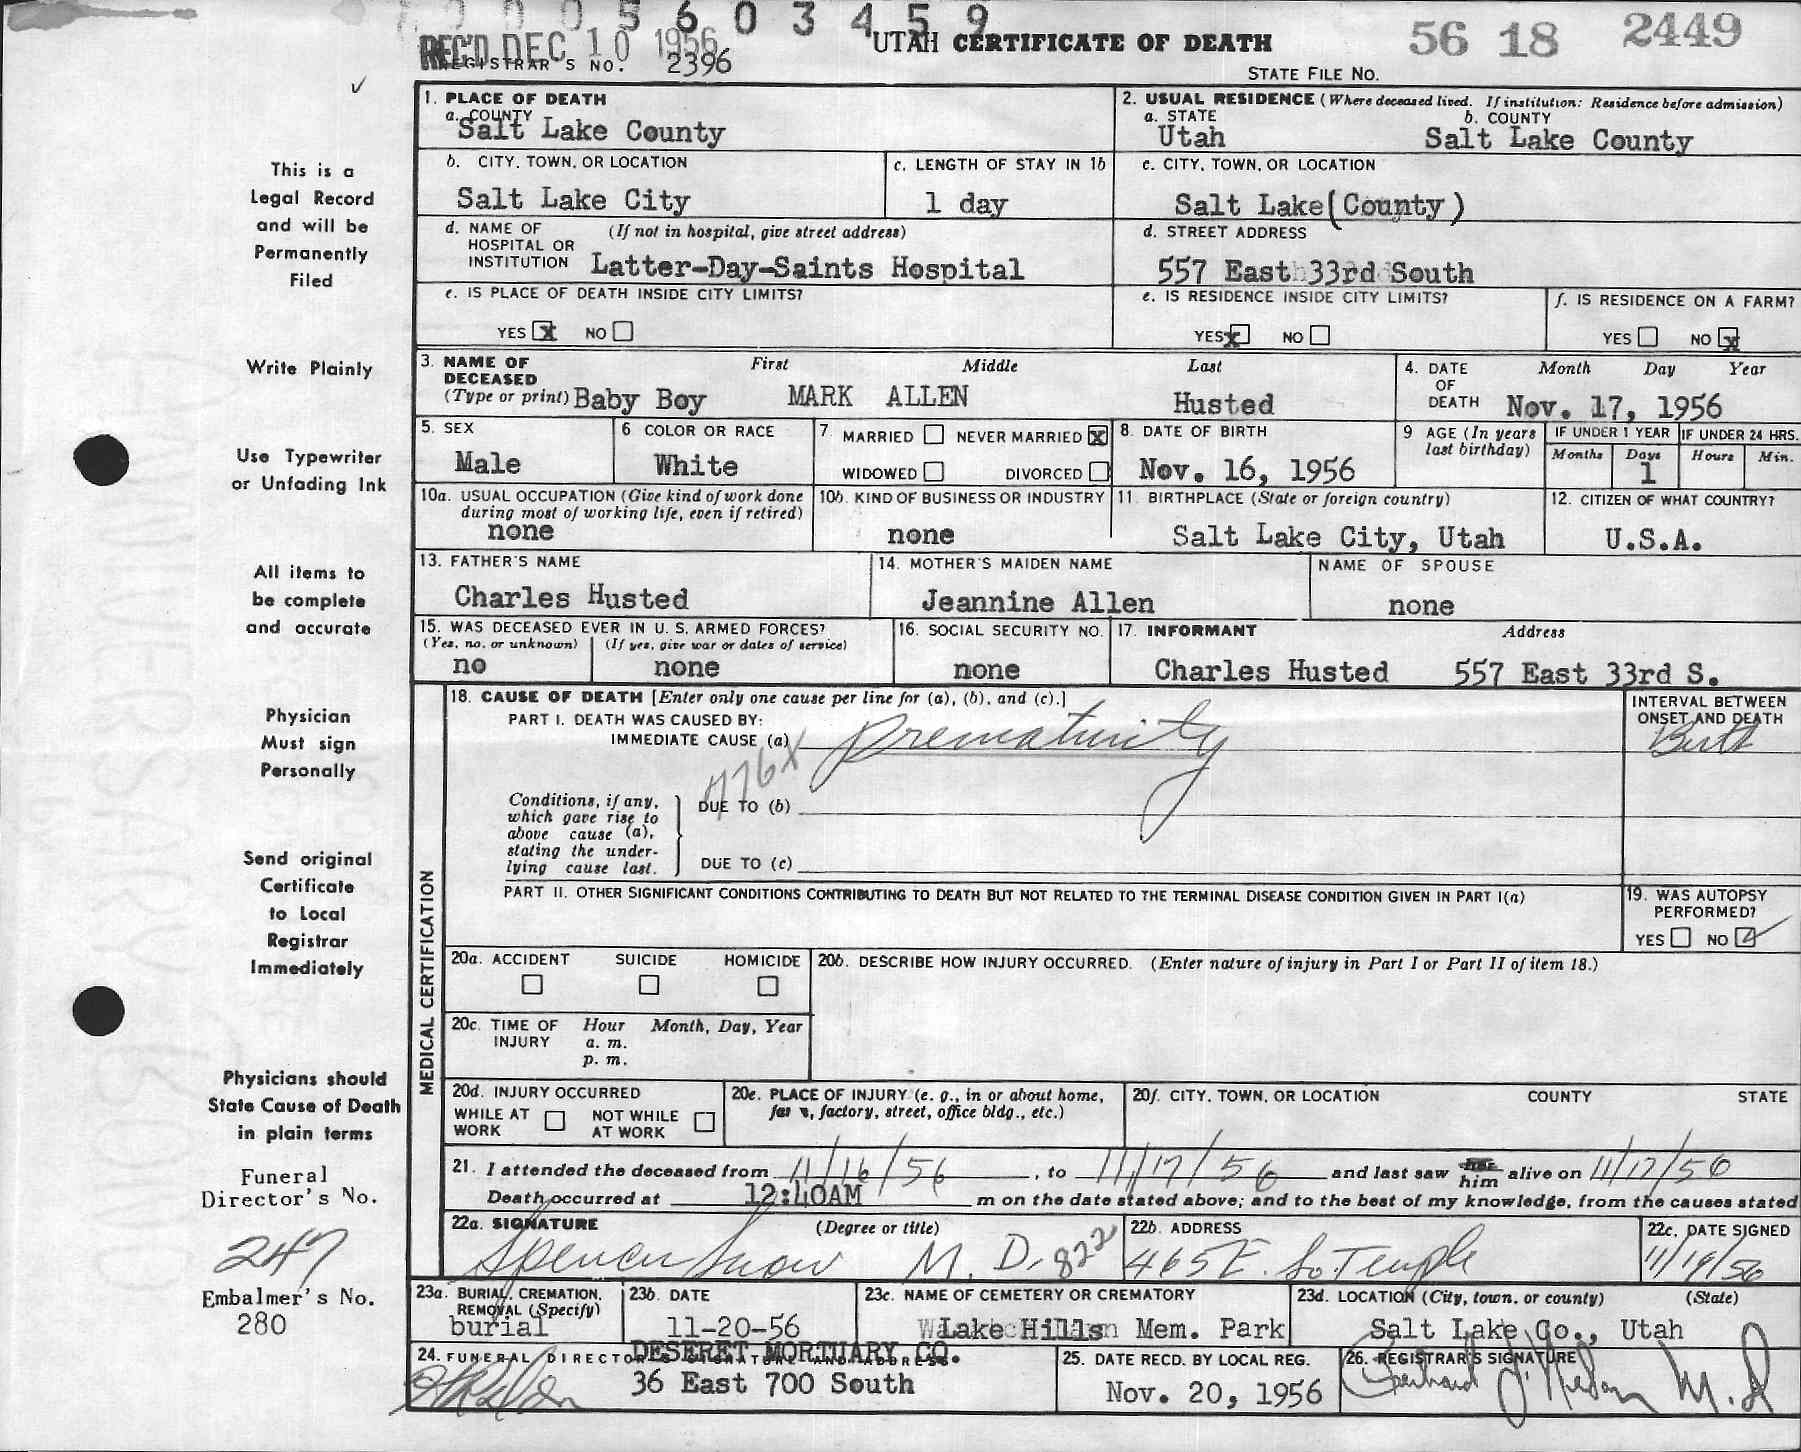 5 6 0 3 4 5 9
REC'D DEC 10 1956
REGISTRAR'S NO. 2396
UTAH CERTIFICATE OF DEATH
56 18 2449
STATE FILE NO.
This is a
Legal Record
and will be
Permanently
Filed
Write Plainly
Use Typewriter
or Unfading Ink
All items to
be complete
and accurate
Physician
Must sign
Personally
Send original
Certificate
to Local
Registrar
Immediately
Physicians should
State Cause of Death
in plain terms
Funeral
Director's No.
247
Embalmer's No.
280
1. PLACE OF DEATH
a. COUNTY
Salt Lake County
2. USUAL RESIDENCE (Where deceased lived. If institution: Residence before admission)
a. STATE b. COUNTY
Utah Salt Lake County
b. CITY, TOWN, OR LOCATION
Salt Lake City
c. LENGTH OF STAY IN 1b
1 day
c. CITY, TOWN, OR LOCATION
Salt Lake (County)
d. NAME OF (If not in hospital, give street address)
HOSPITAL OR
INSTITUTION Latter-Day-Saints Hospital
d. STREET ADDRESS
557 East 33rd South
e. IS PLACE OF DEATH INSIDE CITY LIMITS?
YES x NO
e. IS RESIDENCE INSIDE CITY LIMITS?
YES x NO
f. IS RESIDENCE ON A FARM?
YES NO x
3. NAME OF First Middle Last
DECEASED
(Type or print) Baby Boy MARK ALLEN Husted
4. DATE Month Day Year
OF
DEATH Nov. 17, 1956
5. SEX
Male
6 COLOR OR RACE
White
7. MARRIED NEVER MARRIED X
WIDOWED DIVORCED
8. DATE OF BIRTH
Nov. 16, 1956
9 AGE (In years
last birthday)
IF UNDER 1 YEAR IF UNDER 24 HRS.
Months Days Hours Min.
1
10a. USUAL OCCUPATION (Give kind of work done
during most of working life, even if retired)
none
10b. KIND OF BUSINESS OR INDUSTRY
none
11. BIRTHPLACE (State or foreign country)
Salt Lake City, Utah
12. CITIZEN OF WHAT COUNTRY?
U.S.A.
13. FATHER'S NAME
Charles Husted
14. MOTHER'S MAIDEN NAME
Jeannine Allen
NAME OF SPOUSE
none
15. WAS DECEASED EVER IN U. S. ARMED FORCES?
(Yes, no, or unknown) (If yes, give war or dates of service)
no none
16. SOCIAL SECURITY NO.
none
17. INFORMANT Address
Charles Husted 557 East 33rd S.
MEDICAL CERTIFICATION
18. CAUSE OF DEATH [Enter only one cause per line for (a), (b), and (c).]
PART I. DEATH WAS CAUSED BY:
IMMEDIATE CAUSE (a) Prematurity
776X
INTERVAL BETWEEN
ONSET AND DEATH
Birth
Conditions, if any,
which gave rise to
above cause (a),
stating the under-
lying cause last.
DUE TO (b)
DUE TO (c)
PART II. OTHER SIGNIFICANT CONDITIONS CONTRIBUTING TO DEATH BUT NOT RELATED TO THE TERMINAL DISEASE CONDITION GIVEN IN PART I(a)
19. WAS AUTOPSY
PERFORMED?
YES NO ✓
20a. ACCIDENT SUICIDE HOMICIDE
20b. DESCRIBE HOW INJURY OCCURRED. (Enter nature of injury in Part I or Part II of item 18.)
20c. TIME OF Hour Month, Day, Year
INJURY a. m.
p. m.
20d. INJURY OCCURRED
WHILE AT NOT WHILE
WORK AT WORK
20e. PLACE OF INJURY (e. g., in or about home,
farm, factory, street, office bldg., etc.)
20f. CITY, TOWN, OR LOCATION COUNTY STATE
21. I attended the deceased from 11/16/56, to 11/17/56 and last saw her him alive on 11/17/56
Death occurred at 12:40AM m on the date stated above; and to the best of my knowledge, from the causes stated
22a. SIGNATURE (Degree or title)
Spencer Snow M. D. 822
22b. ADDRESS
465 E. So. Temple
22c. DATE SIGNED
11/19/56
23a. BURIAL, CREMATION,
REMOVAL (Specify)
burial
23b. DATE
11-20-56
23c. NAME OF CEMETERY OR CREMATORY
Lake Hills Mem. Park
23d. LOCATION (City, town, or county) (State)
Salt Lake Co., Utah
24. FUNERAL DIRECTOR'S SIGNATURE AND ADDRESS.
DESERET MORTUARY CO.
36 East 700 South
25. DATE RECD. BY LOCAL REG.
Nov. 20, 1956
26. REGISTRAR'S SIGNATURE
M.D